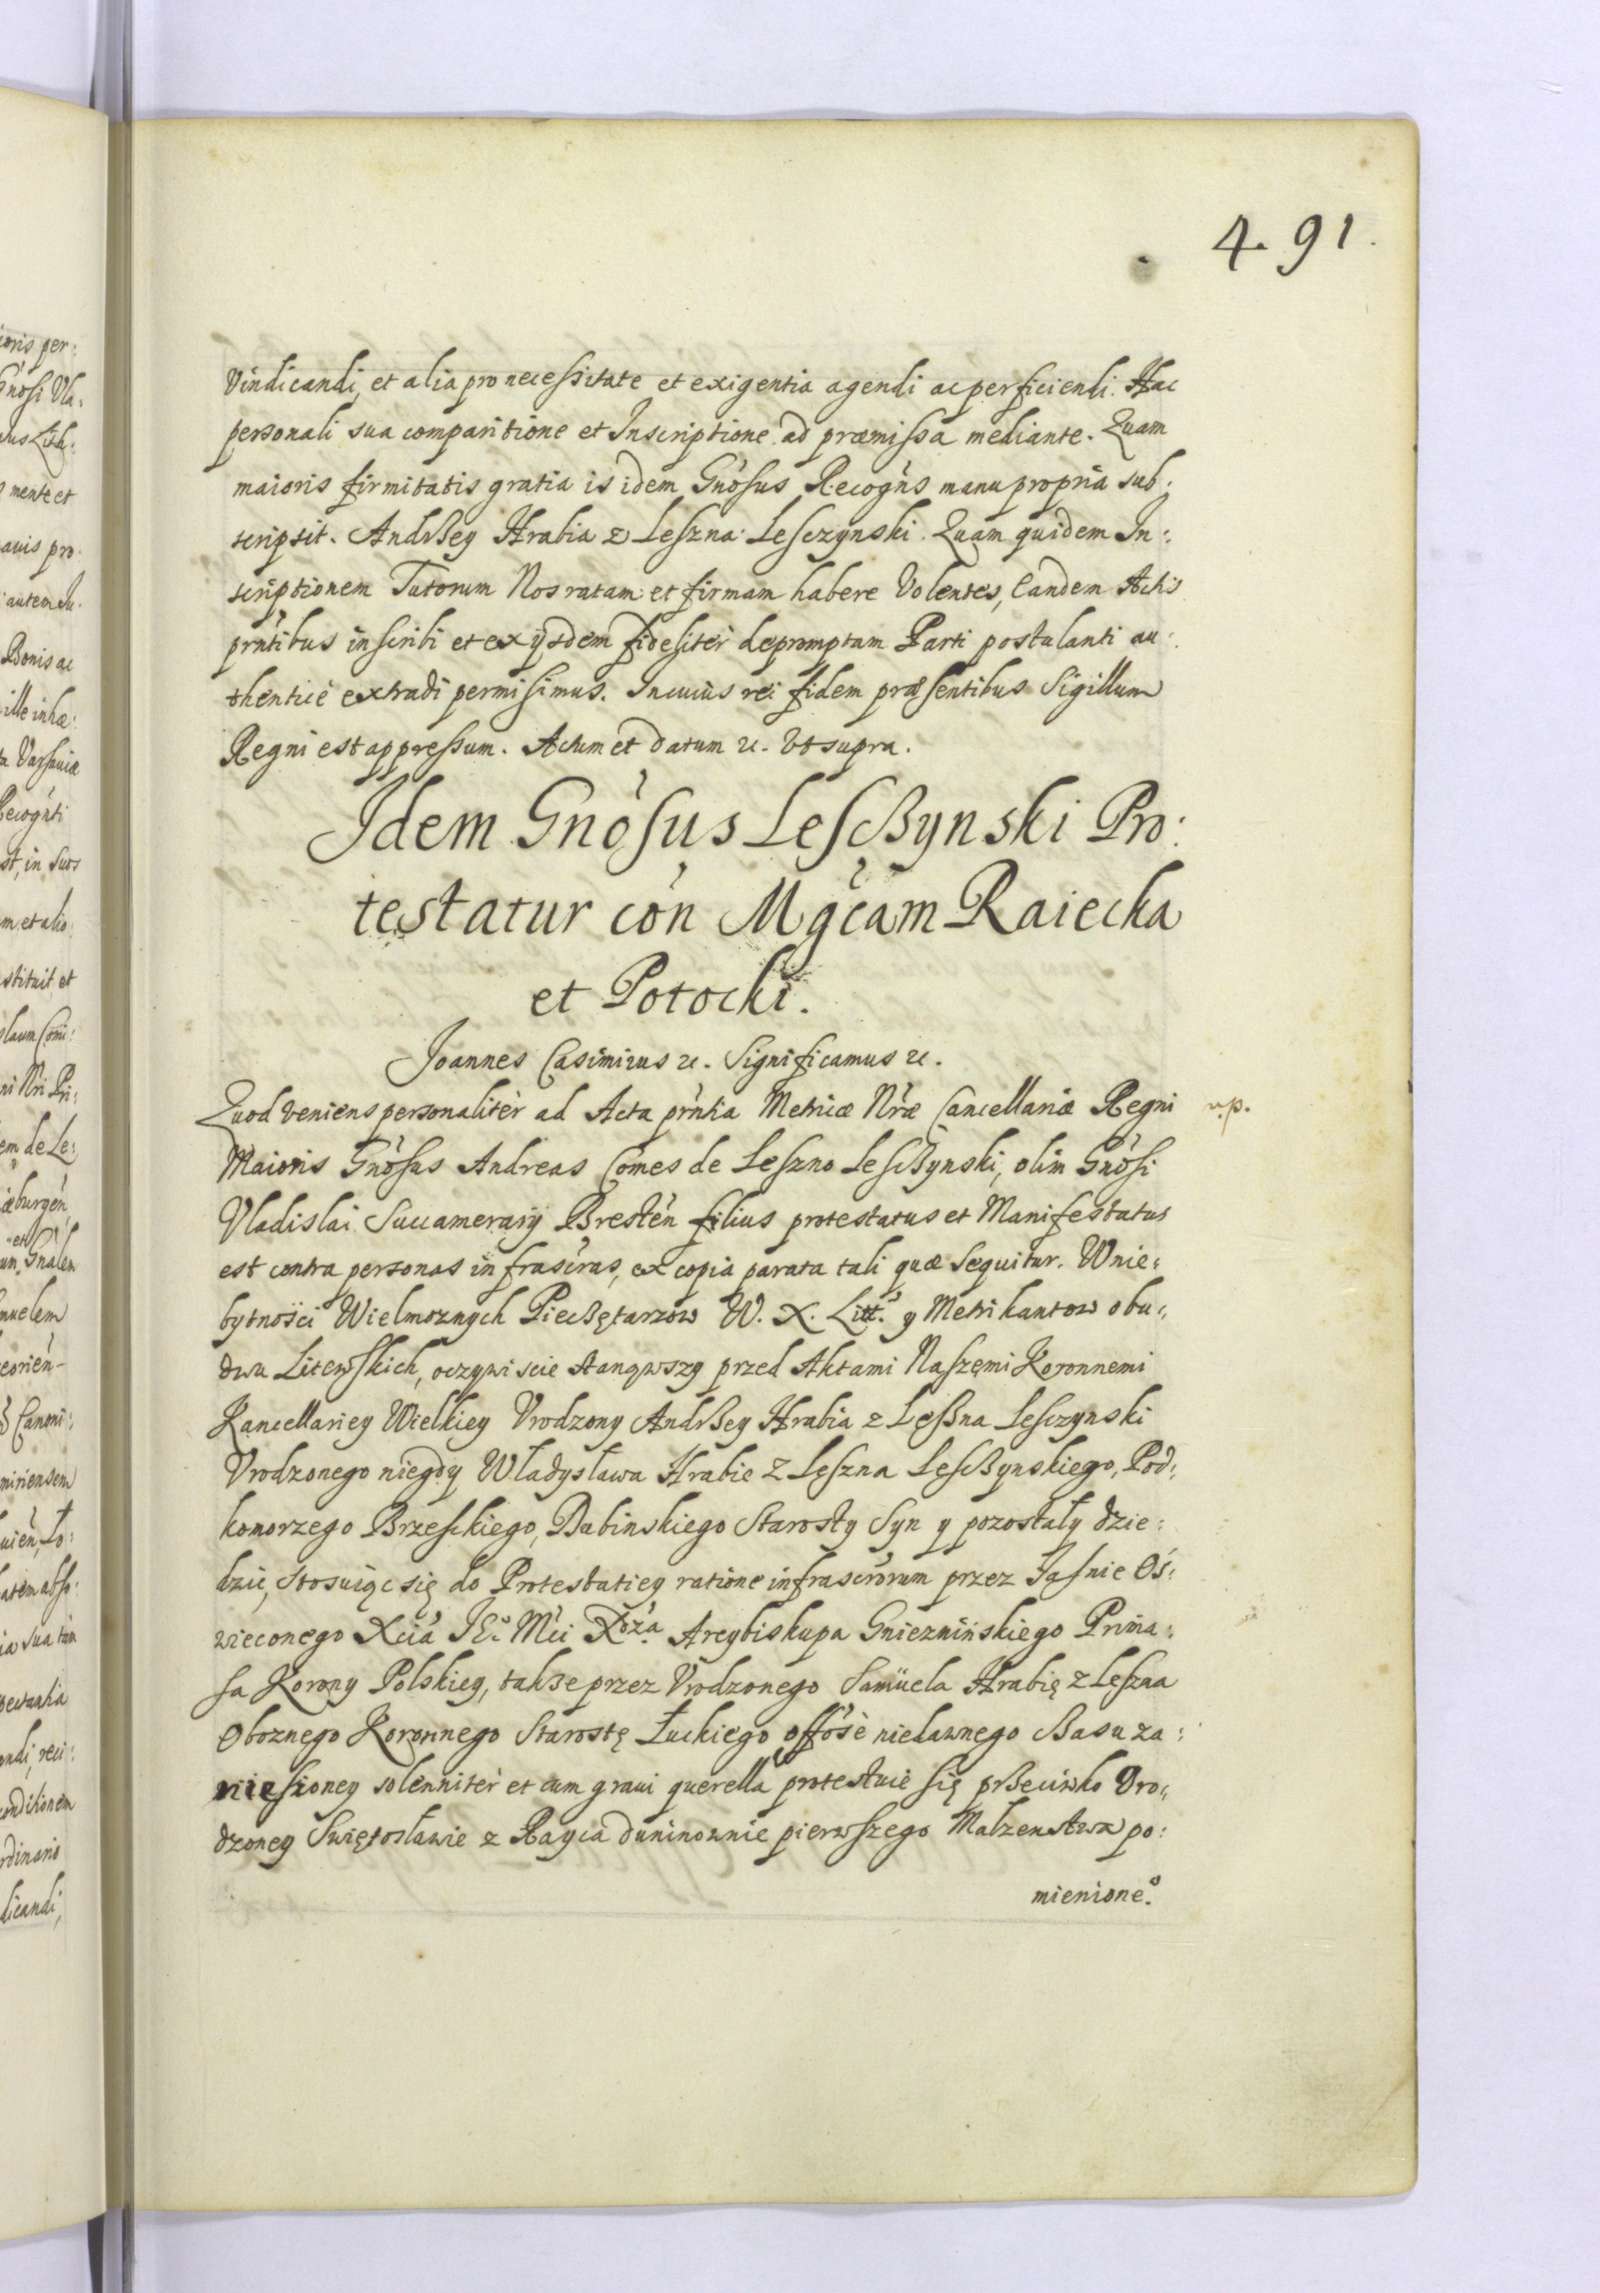 4. 91.
Vindicandi, et alia pro necessitate et exigentia agendi ac perficiendi. Hac
personali sua comparitione et Inscriptione ad præmissa mediante. Quam
maioris firmitatis gratia is idem Gnosus Recogns manu propria sub:
scripsit. Andrßey Hrabia z Leszna Lesczynski. Quam quidem In:
scriptionem Tutorum Nos ratam et firmam habere Volentes, Eandem Actis
prntibus inscribi et ex ijsdem fideliter depromptam Parti postulanti au:
thentice extradi permisimus. In cuius rei fidem præsentibus Sigillum
Regni est appressum. Actum et datum etc. Vt supra.
Idem Gnosus Lescßynski Pro:
testatur con Mgcam Raiecka
et Potocki.
Joannes Casimirus etc. Significamus etc.
Quod veniens personaliter ad Acta prntia Metricæ Nræ Cancellariæ Regni
Maioris Gnosus Andreas Comes de Leszno Lescßynski, olim Gnosi
Vladislai Succamerarij Bresten filius protestatus et Manifestatus
est contra personas infrascras, ex copia parata tali quæ sequitur. W nie:
bytności Wielmoznych Piecßętarzow W. X. Litt. y Metrikantow obu:
dwu Litewskich, oczywiscie stanąwszy przed Aktami Naszęmi Koronnemi
Kancellariey Wielkiey Vrodzony Andrßey Hrabia z Leßna Lesczynski
Vrodzonego niegdy Władysława Hrabie z Leszna Lescßynskiego, Pod:
komorzego Brzesckiego, Dubinskiego Starosty Syn y pozostały dzie:
dzic, stosuiąc się do Protestatiey ratione infrascrorum przez Jasnie Oś:
wieconego Xcia JE° Mci Xdza Arcybiskupa Gniezninskiego Prima:
sa Korony Polskiey, takze przez Vrodzonego Samuela Hrabię z Leszna
Oboznego Koronnego Starostę Łuckiego offose niedawnego Casu za:
niesioney solenniter et cum graui querella protestuie się prßeciwko Vro:
dzoney Swiętosławie z Rayca duninownie pierwszego Małzenstwa po:
mienione°
n.p.